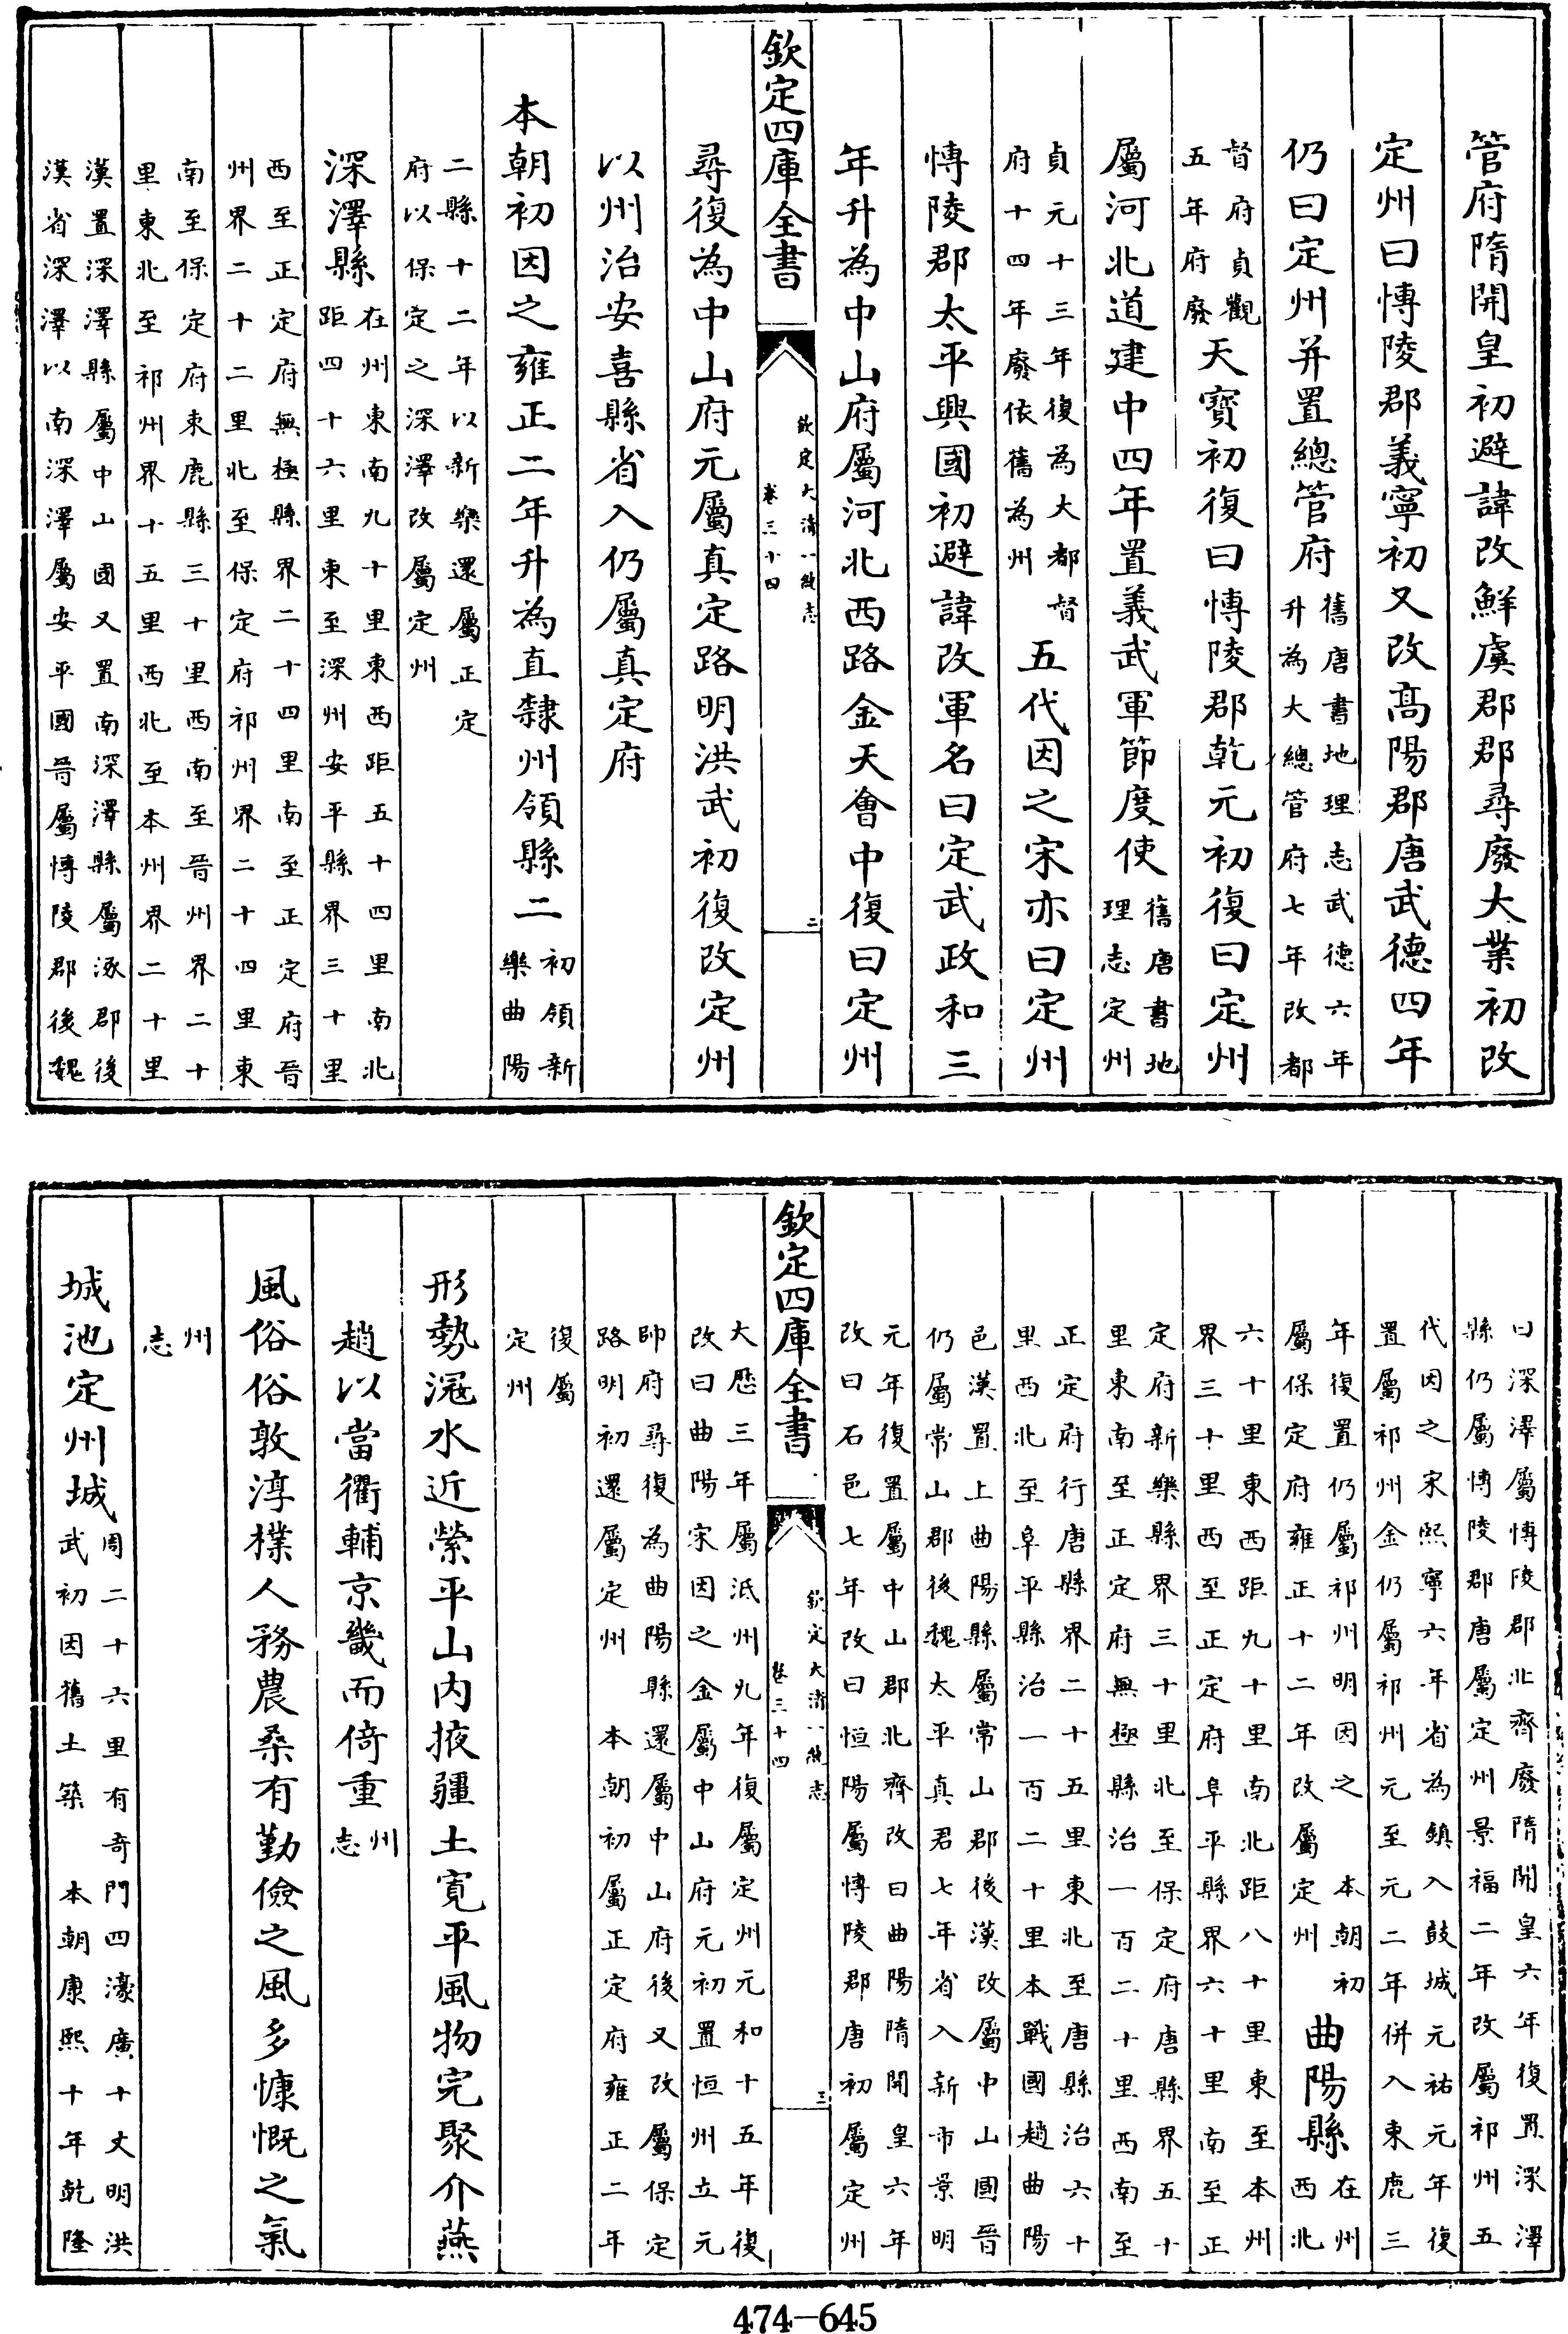 管府隋開皇初避諱改鮮虞郡郡尋廢大業初改
定州曰博陵郡義寧初又改高陽郡唐武德四年
仍曰定州并置總管府舊唐書地理志武德六年升為大總管府七年改都
督府貞觀五年府廢天寶初復曰博陵郡乾元初復曰定州
屬河北道建中四年置義武軍節度使舊唐書地理志定州
貞元十三年復為大都督府十四年廢依舊為州五代因之宋亦曰定州
博陵郡太平興國初避諱改軍名曰定武政和三
年升為中山府屬河北西路金天會中復曰定州
欽定四庫全書
欽定大清一統志
卷三十四
二
尋復為中山府元屬真定路明洪武初復改定州
以州治安喜縣省入仍屬真定府
本朝初因之雍正二年升為直隸州領縣二初領新樂曲陽
二縣十二年以新樂還屬正定
府以保定之深澤改屬定州
深澤縣在州東南九十里東西距五十四里南北距四十六里東至深州安平縣界三十里
西至正定府無極縣界二十四里南至正定府晉
州界二十二里北至保定府祁州界二十四里東
南至保定府束鹿縣三十里西南至晉州界二十
里東北至祁州界十五里西北至本州界二十里
漢置深澤縣屬中山國又置南深澤縣屬涿郡後
漢省深澤以南深澤屬安平國晉屬博陵郡後魏
曰深澤屬博陵郡北齊廢隋開皇六年復置深澤
縣仍屬博陵郡唐屬定州景福二年改屬祁州五
代因之宋熙寧六年省為鎮入鼓城元祐元年復
置屬祁州金仍屬祁州元至元二年併入束鹿三
年復置仍屬祁州明因之 本朝初
屬保定府雍正十二年改屬定州曲陽縣在州西北
六十里東西距九十里南北距八十里東至本州
界三十里西至正定府阜平縣界六十里南至正
定府新樂縣界三十里北至保定府唐縣界五十
里東南至正定府無極縣治一百二十里西南至
正定府行唐縣界二十五里東北至唐縣治六十
里西北至阜平縣治一百二十里本戰國趙曲陽
邑漢置上曲陽縣屬常山郡後漢改屬中山國晉
仍屬常山郡後魏太平真君七年省入新市景明
元年復置屬中山郡北齊改曰曲陽隋開皇六年
改曰石邑七年改曰恒陽屬博陵郡唐初屬定州
欽定四庫全書
欽定大清一統志
卷三十四
三
大歷三年屬泜州九年復屬定州元和十五年復
改曰曲陽宋因之金屬中山府元初置恒州立元
帥府尋復為曲陽縣還屬中山府後又改屬保定
路明初還屬定州 本朝初屬正定府雍正二年
復屬
定州
形勢滱水近縈平山内掖疆土寛平風物完聚介燕
趙以當衢輔京畿而倚重州志
風俗俗敦淳樸人務農桑有勤儉之風多慷慨之氣
州志
城池定州城周二十六里有奇門四濠廣十丈明洪武初因舊土築 本朝康熙十年乾隆
474-645